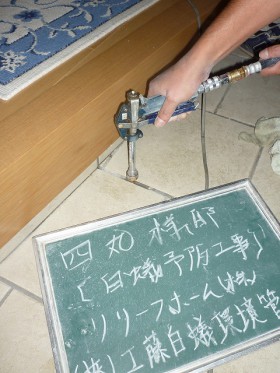 四丸様邸
(白蟻予防工事)
リリーフホーム(株)
(株)工藤白蟻環境管